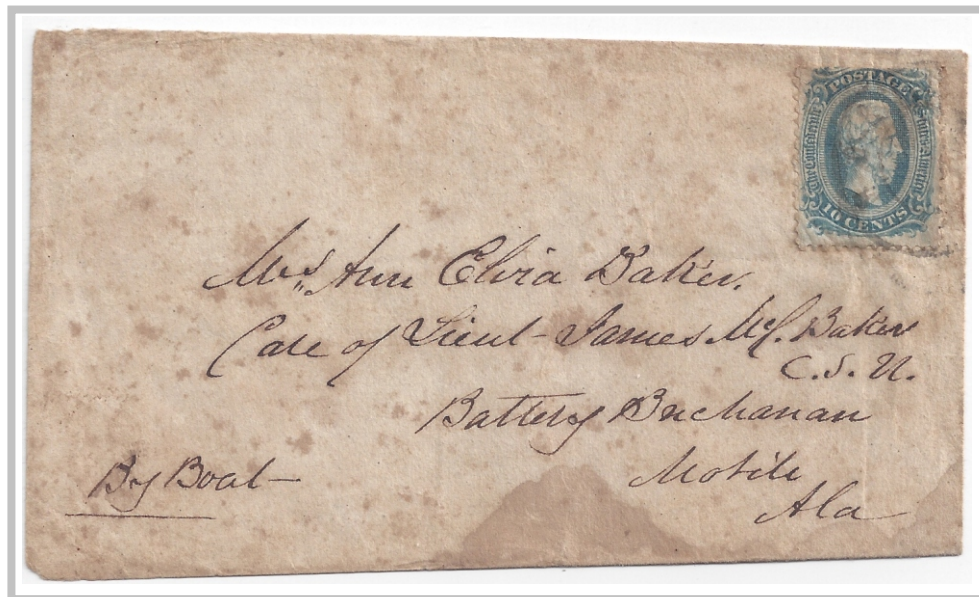 POSTAGE
The Confederate States of America
10 CENTS
Mrs Ann Elvia Baker.
Care of Lieut- James Mc. Baker
C.S.N.
Battery Buchanan
Mobile
Ala
By Boat